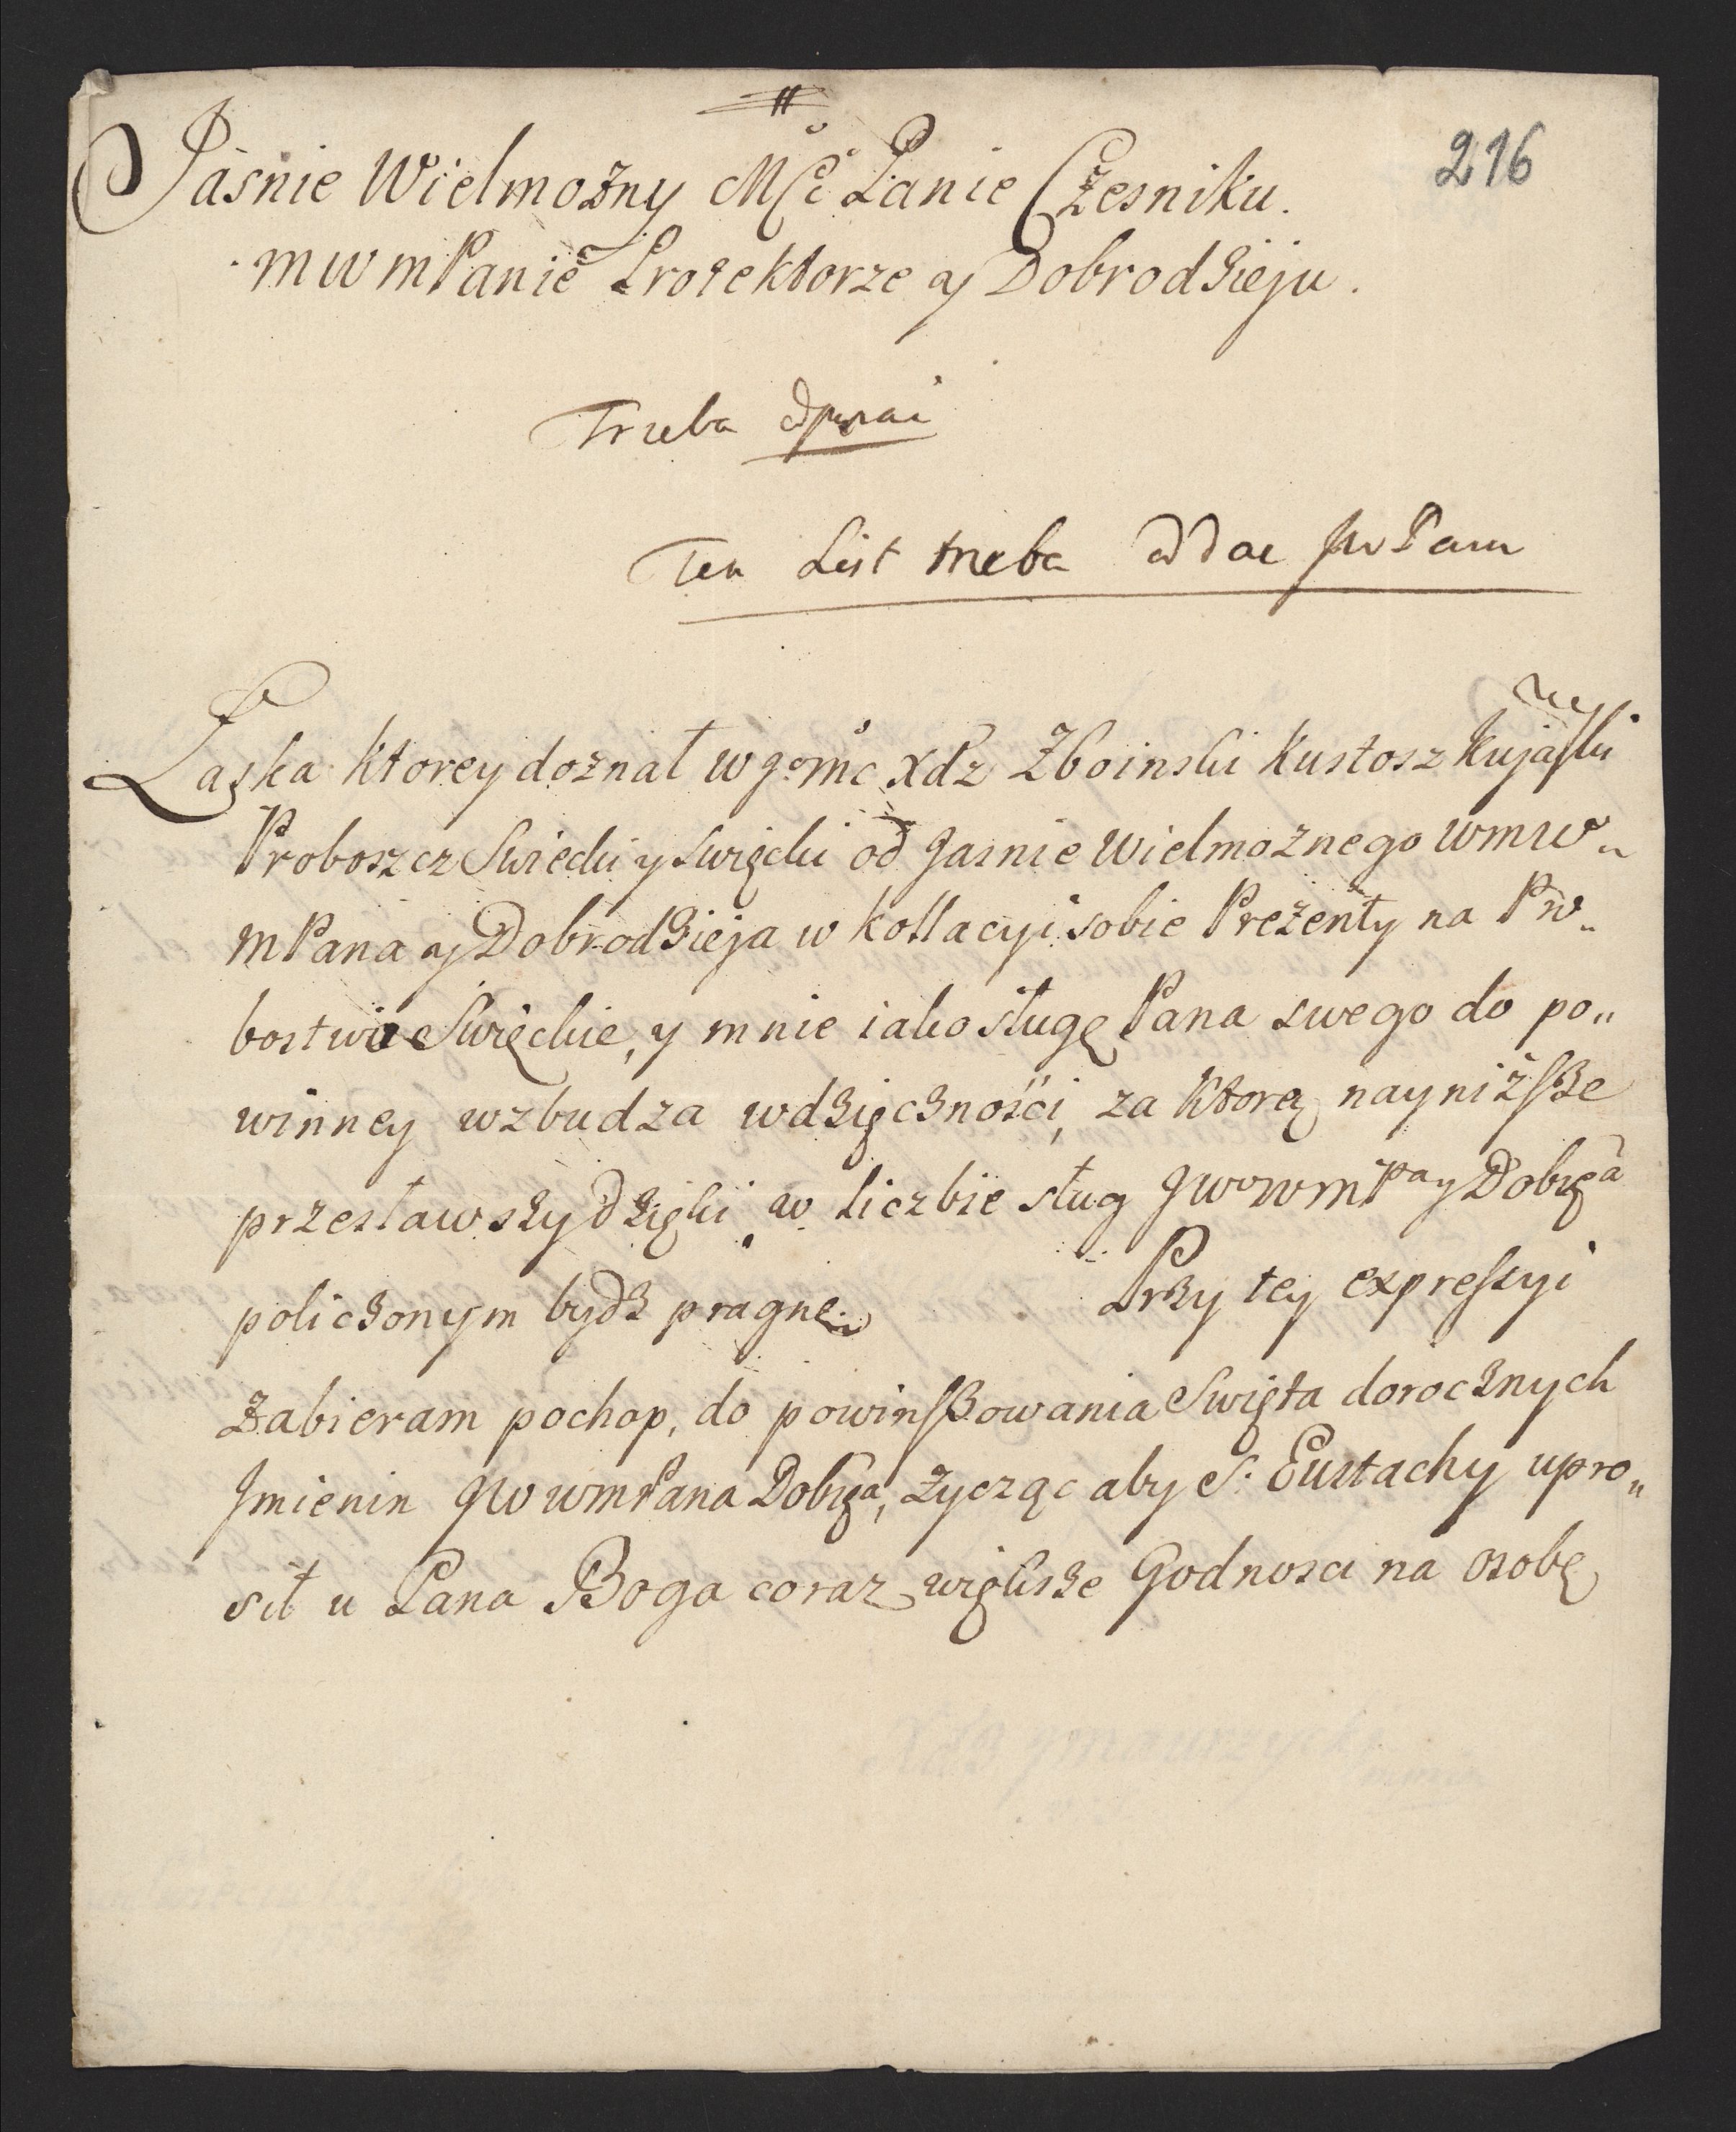 216
Jasnie Wielmozny Mci Panie Czesniku.
mwmPanie Protektorze y Dobrodzieju.
Trzeba odpisac
Ten List trzeba oddac JwPanu
Łaska ktorey doznał wgomc xdz Zboinski kustosz kujaski
Proboszcz Swiecki y swięcki od Jasnie Wielmoznego wmw„
mPana y Dobrodzieja w kollacyi sobie Prezenty na Pro„
bostwo Swięckie, y mnie iako sługę Pana swego do po„
winney wzbudza wdzięcznosci, za ktorą naynizsze
przesławszy dzięki w liczbie sług JwwmPa y Dobrza
policzonym bydz pragnę. Przy tey expressyi
zabieram pochop, do powinszowania Swięta dorocznych
Jmienin JwwmPana Dobrza, zycząc aby S. Eustachy upro„
sił u Pana Boga coraz większe Godnosci na osobę